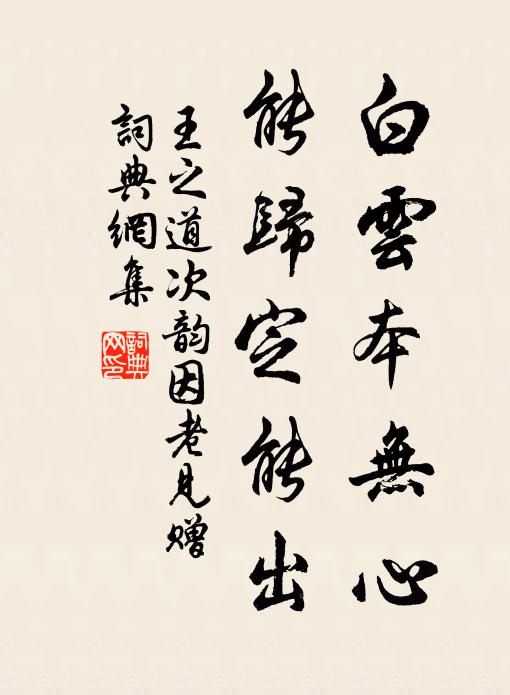 白雲本無心
能歸定能出
王之道次韵因老見贈
詞典網集
詞典网印